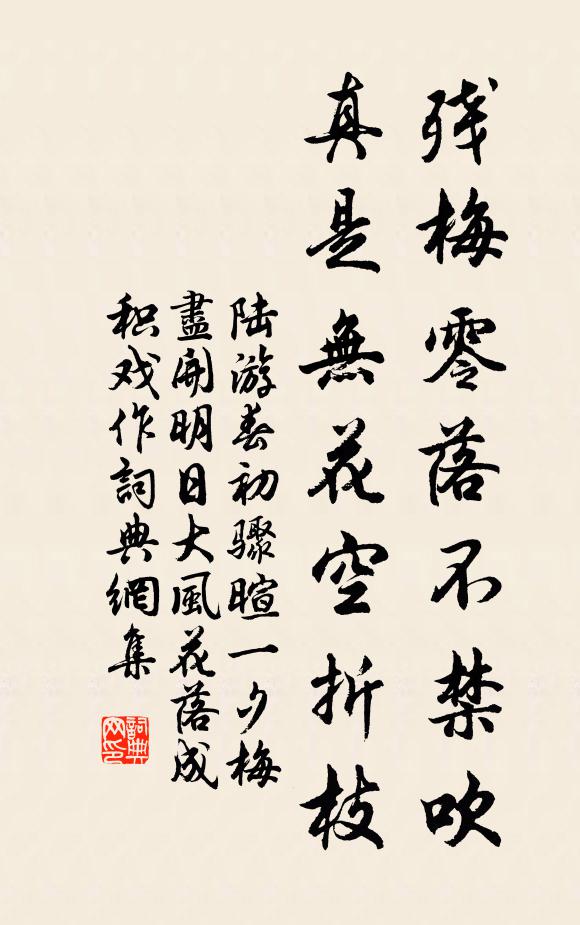 残梅零落不禁吹
真是無花空折枝
陆游春初骤暄一夕梅
盡開明日大風花落成
积戏作詞典網集
詞典
网印